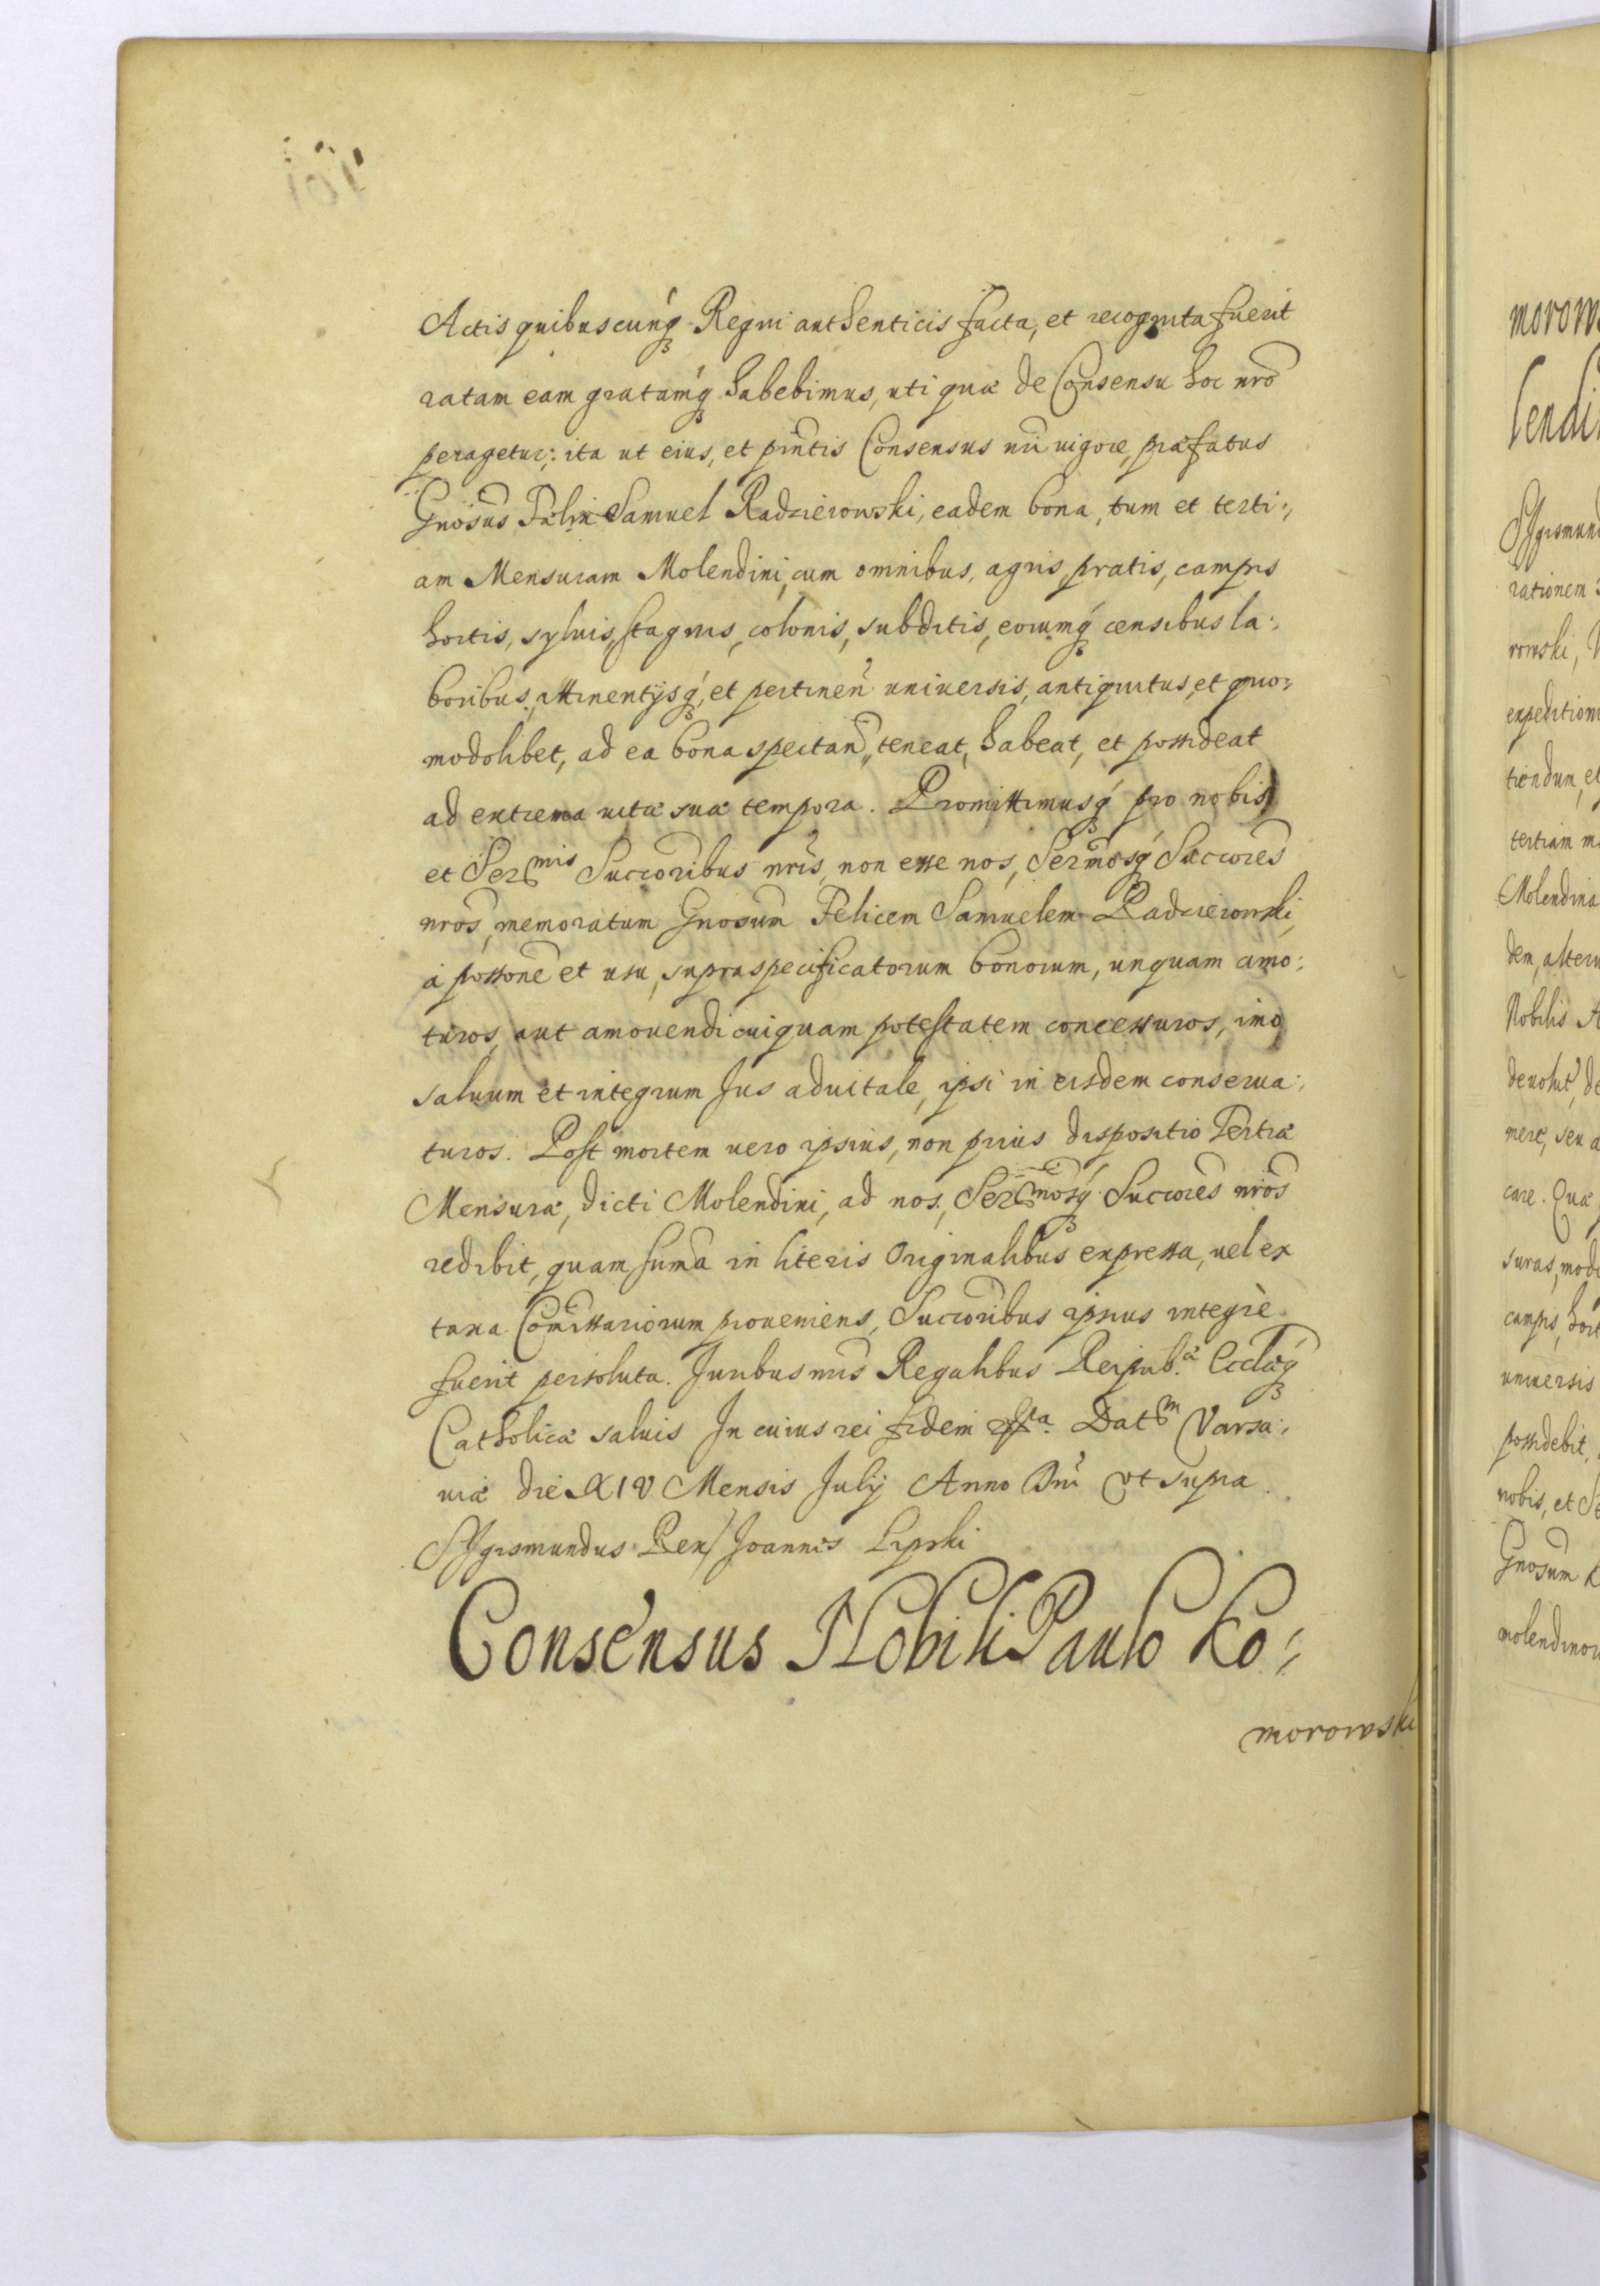 Actis quibuscunq́ꝫ Regni authenticis facta, et recognita fuerit
ratam eam gratamq́ꝫ habebimus, uti quæ de Consensu hoc nr̃o
peragetur; ita ut eius, et pñtis Consensus nr̃i uigore, præfatus
Gnõsus Fælix Samuel Radzieiowski, eadem bona, tum et terti:,
am Mensuram Molendini, cum omnibus, agris, pratis, campis
hortis, syluis, stagnis, colonis, subditis, eorumq́ꝫ censibus la:,
boribus, attinentijsq́ꝫ, et pertineñ uniuersis, antiquitus, et quo:,
modolibet, ad ea bona spectañ, teneat, habeat, et possideat
ad extrema uitæ suæ tempora. Promittimusq́ꝫ pro nobis
et Ser mis Succoribus nr̃is, non esse nos, Sermosq́ꝫ Succores
nr̃os, memoratum Gnosum Felicem Samuelem Radzieiowski,
à possone et usu, supraspecificatorum bonorum, unquam amo:,
turos, aut amouendi cuiquam potestatem concessuros, imo
saluum et integrum Jus aduitale, ipsi in eisdem conserua:,
turos. Post mortem uero ipsius, non prius dispositio Tertiæ
Mensuræ, dicti Molendini, ad nos, Ser mosq́ꝫ Succores nr̃os
redibit, quam sum̃a in literis Originalibus expressa, uel ex
taxa Com̃issariorum proueniens, Succoribus ipsius integrè
fuerit persoluta. Juribus nr̃is Regalibus Reipub.æ Ecclæq́ꝫ
Catholicæ saluis In cuius rei fidem Dat m Varsa:,
uiæ die XIV Mensis Julij Anno Dni ut supra
Sygismundus Rex/ Joannes Lipski
Consensus Nobili Paulo Ko:,
morowski